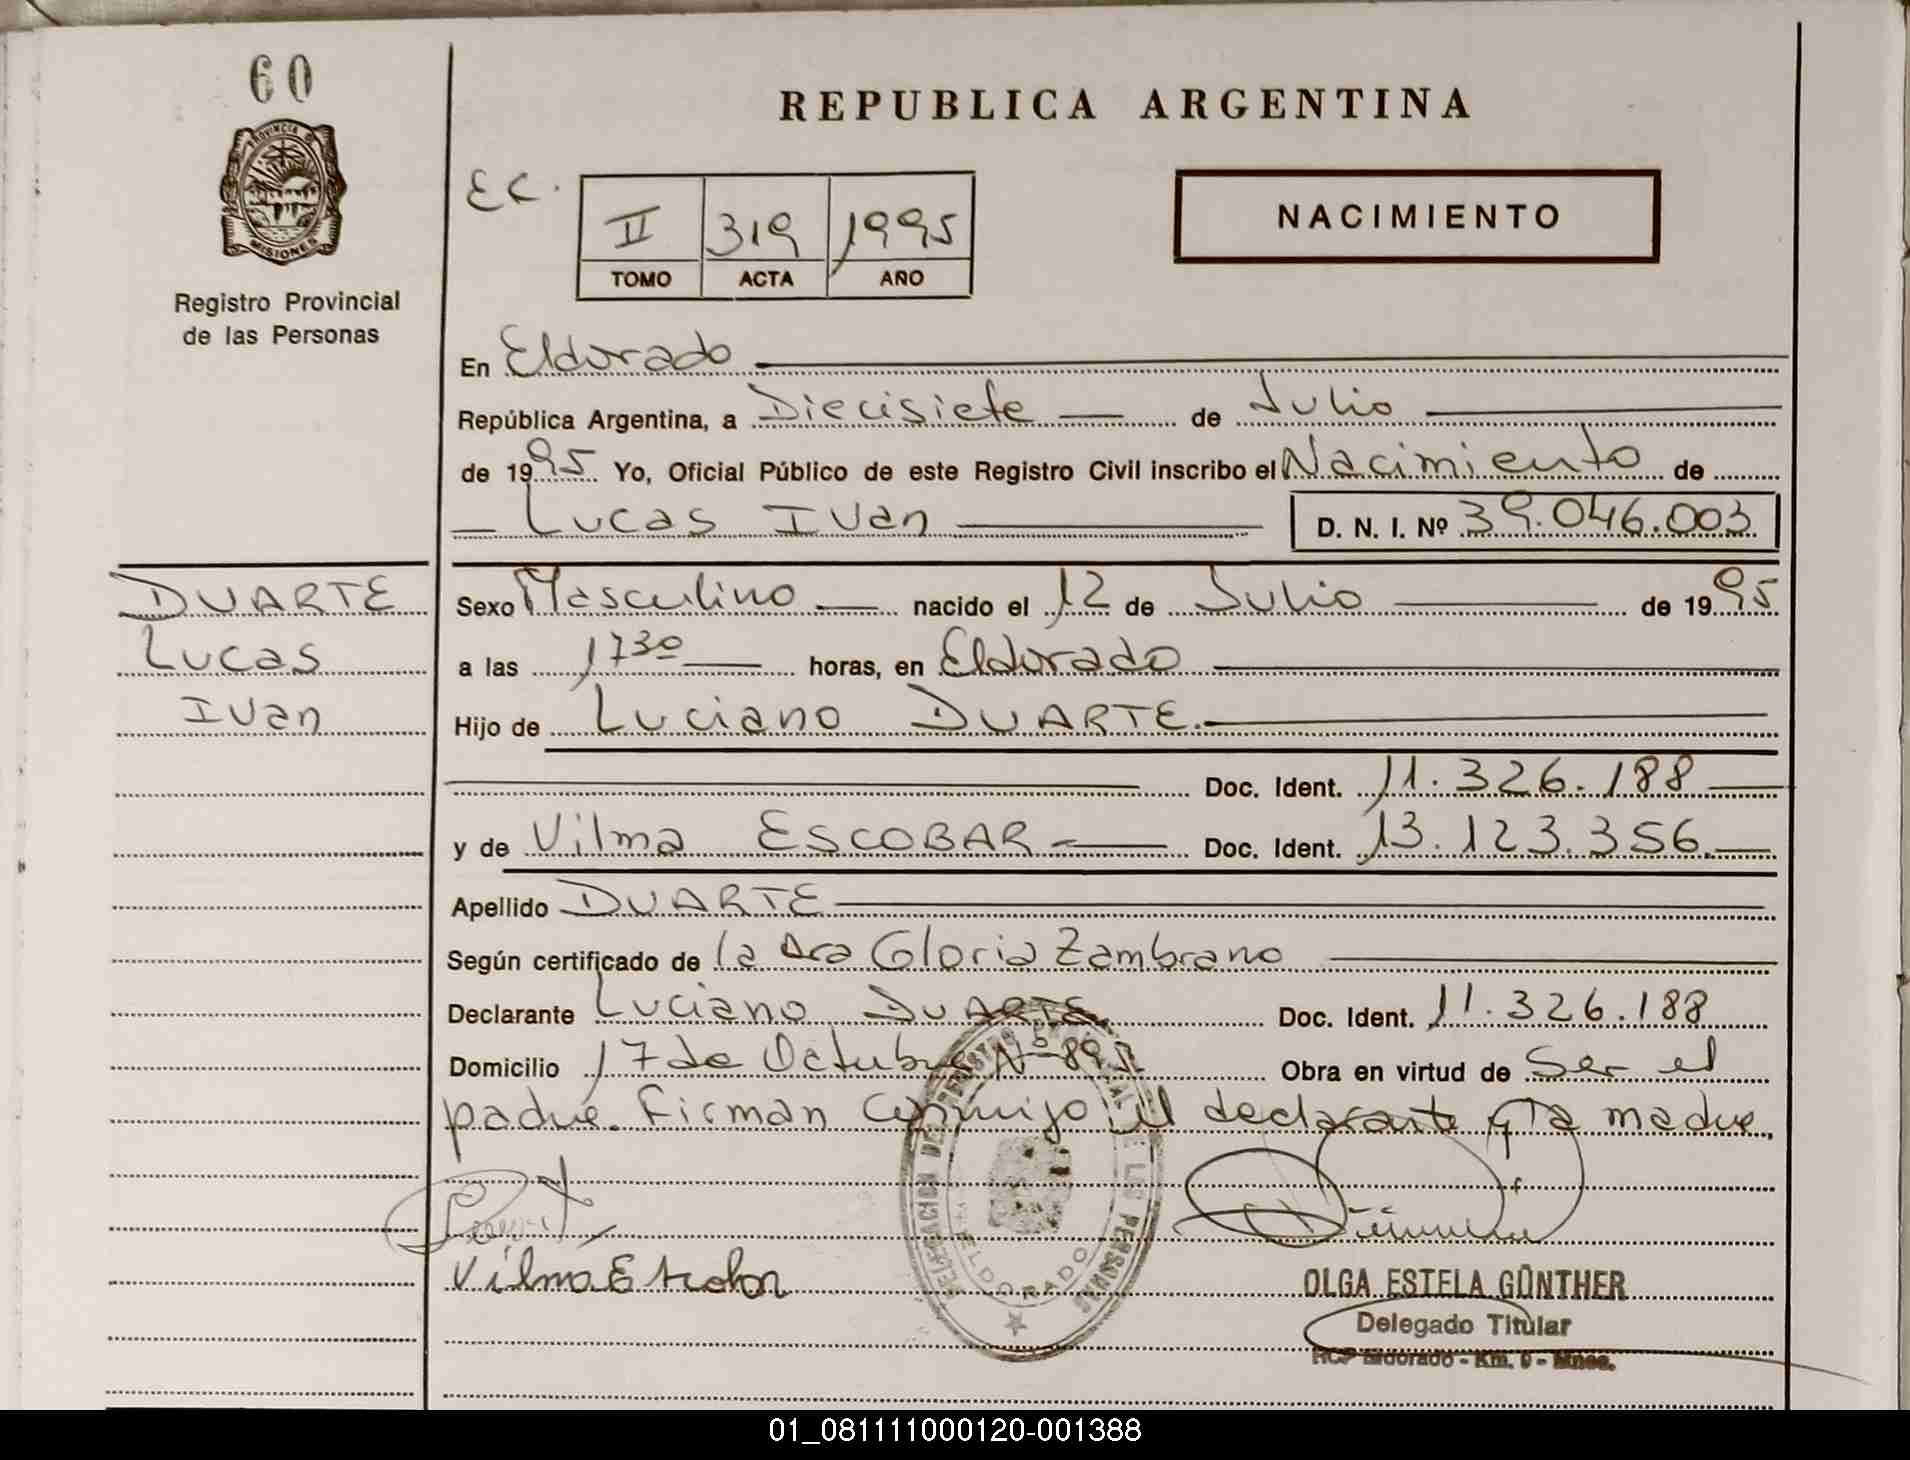 60
PROVINCIA DE
MISIONES
Registro Provincial
de las Personas
REPUBLICA ARGENTINA
EC.
II 319 1995
TOMO ACTA AÑO
NACIMIENTO
En Eldorado
República Argentina, a Diecisiete de Julio
de 1995 Yo, Oficial Público de este Registro Civil inscribo el Nacimiento de
Lucas Ivan D. N. I. Nº 39.046.003
DUARTE
Lucas
Ivan
Sexo Masculino nacido el 12 de Julio de 1995
a las 1730 horas, en Eldorado
Hijo de Luciano DUARTE.
Doc. Ident. 11.326.188
y de Vilma ESCOBAR Doc. Ident. 13.123.356.
Apellido DUARTE
Según certificado de la Dra Gloria Zambrano
Declarante Luciano DUARTE. Doc. Ident. 11.326.188
Domicilio 17 de Octubre Nº Obra en virtud de Ser el
padre. Firman conmigo el declarante y la madre,
Vilma Escobar
DELEGACION DEL REGISTRO DE LAS PERSONAS
ELDORADO
OLGA ESTELA GÜNTHER
Delegado Titular
RCP Eldorado - Km. 9 - Mnes.
01_081111000120-001388